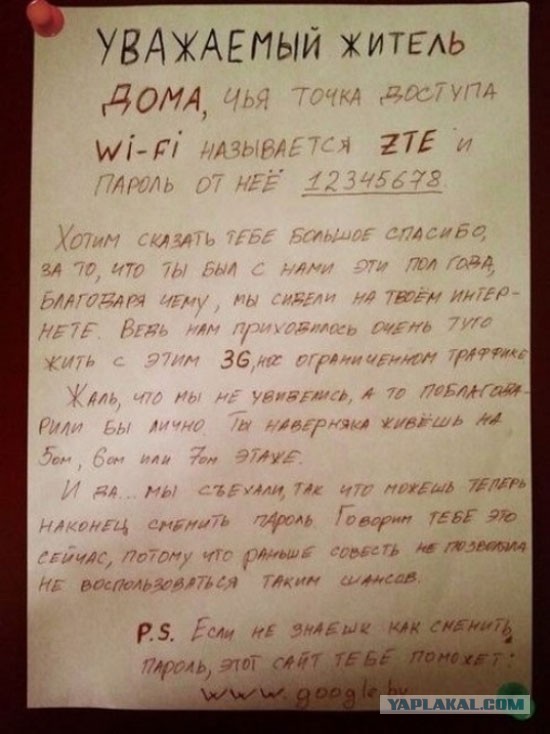 УВАЖАЕМЫЙ ЖИТЕЛЬ
ДОМА, ЧЬЯ ТОЧКА ДОСТУПА
Wi-Fi НАЗЫВАЕТСЯ ZTE И
ПАРОЛЬ ОТ НЕЁ 12345678.
ХОТИМ СКАЗАТЬ ТЕБЕ БОЛЬШОЕ СПАСИБО,
ЗА ТО, ЧТО ТЫ БЫЛ С НАМИ ЭТИ ПОЛ ГОДА,
БЛАГОДАРЯ ЧЕМУ, МЫ СИДЕЛИ НА ТВОЁМ ИНТЕР-
НЕТЕ. ВЕДЬ НАМ ПРИХОДИЛОСЬ ОЧЕНЬ ТУГО
ЖИТЬ С ЭТИМ 3G, ОГРАНИЧЕННОМ ТРАФФИКЕ
ЖАЛЬ, ЧТО МЫ НЕ УВИДЕЛИСЬ, А ТО ПОБЛАГОДА-
РИЛИ БЫ ЛИЧНО. ТЫ НАВЕРНЯКА ЖИВЁШЬ НА
5ом, 6ом ИЛИ 7ом ЭТАЖЕ.
И ДА... МЫ СЪЕХАЛИ, ТАК ЧТО МОЖЕШЬ ТЕПЕРЬ
НАКОНЕЦ СМЕНИТЬ ПАРОЛЬ. ГОВОРИМ ТЕБЕ ЭТО
СЕЙЧАС, ПОТОМУ ЧТО РАНЬШЕ СОВЕСТЬ НЕ ПОЗВОЛЯЛА
НЕ ВОСПОЛЬЗОВАТЬСЯ ТАКИМ ШАНСОМ.
P.S. ЕСЛИ НЕ ЗНАЕШЬ КАК СМЕНИТЬ
ПАРОЛЬ, ЭТОТ САЙТ ТЕБЕ ПОМОЖЕТ:
www.google.by
YAPLAKAL.COM